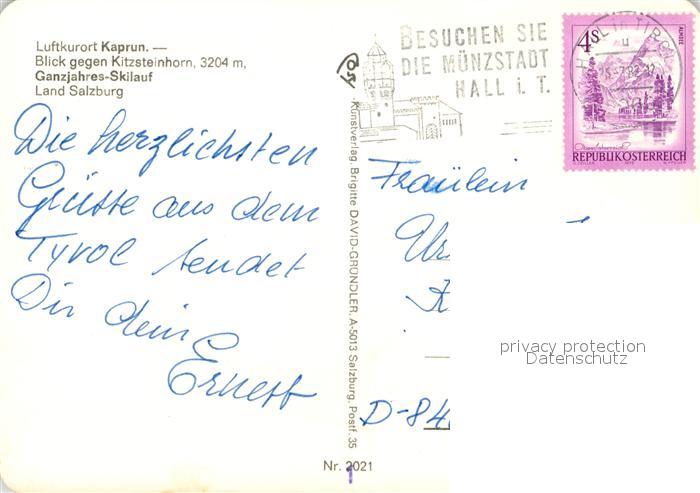 Luftkurort Kaprun. —
Blick gegen Kitzsteinhorn, 3204 m,
Ganzjahres-Skilauf
Land Salzburg
Die herzlichsten
Grüsse aus dem
Tyrol sendet
Dir dein
Ernest
Kunstverlag, Brigitte DAVID-GRÜNDLER, A-5013 Salzburg, Postf. 35
Nr. 2021
1
BESUCHEN SIE
DIE MÜNZSTADT
HALL i. T.
HALL IN TIROL
4S
ALMSEE
Oberösterreich
REPUBLIK ÖSTERREICH
Fräulein
Ur
D-84
privacy protection
Datenschutz